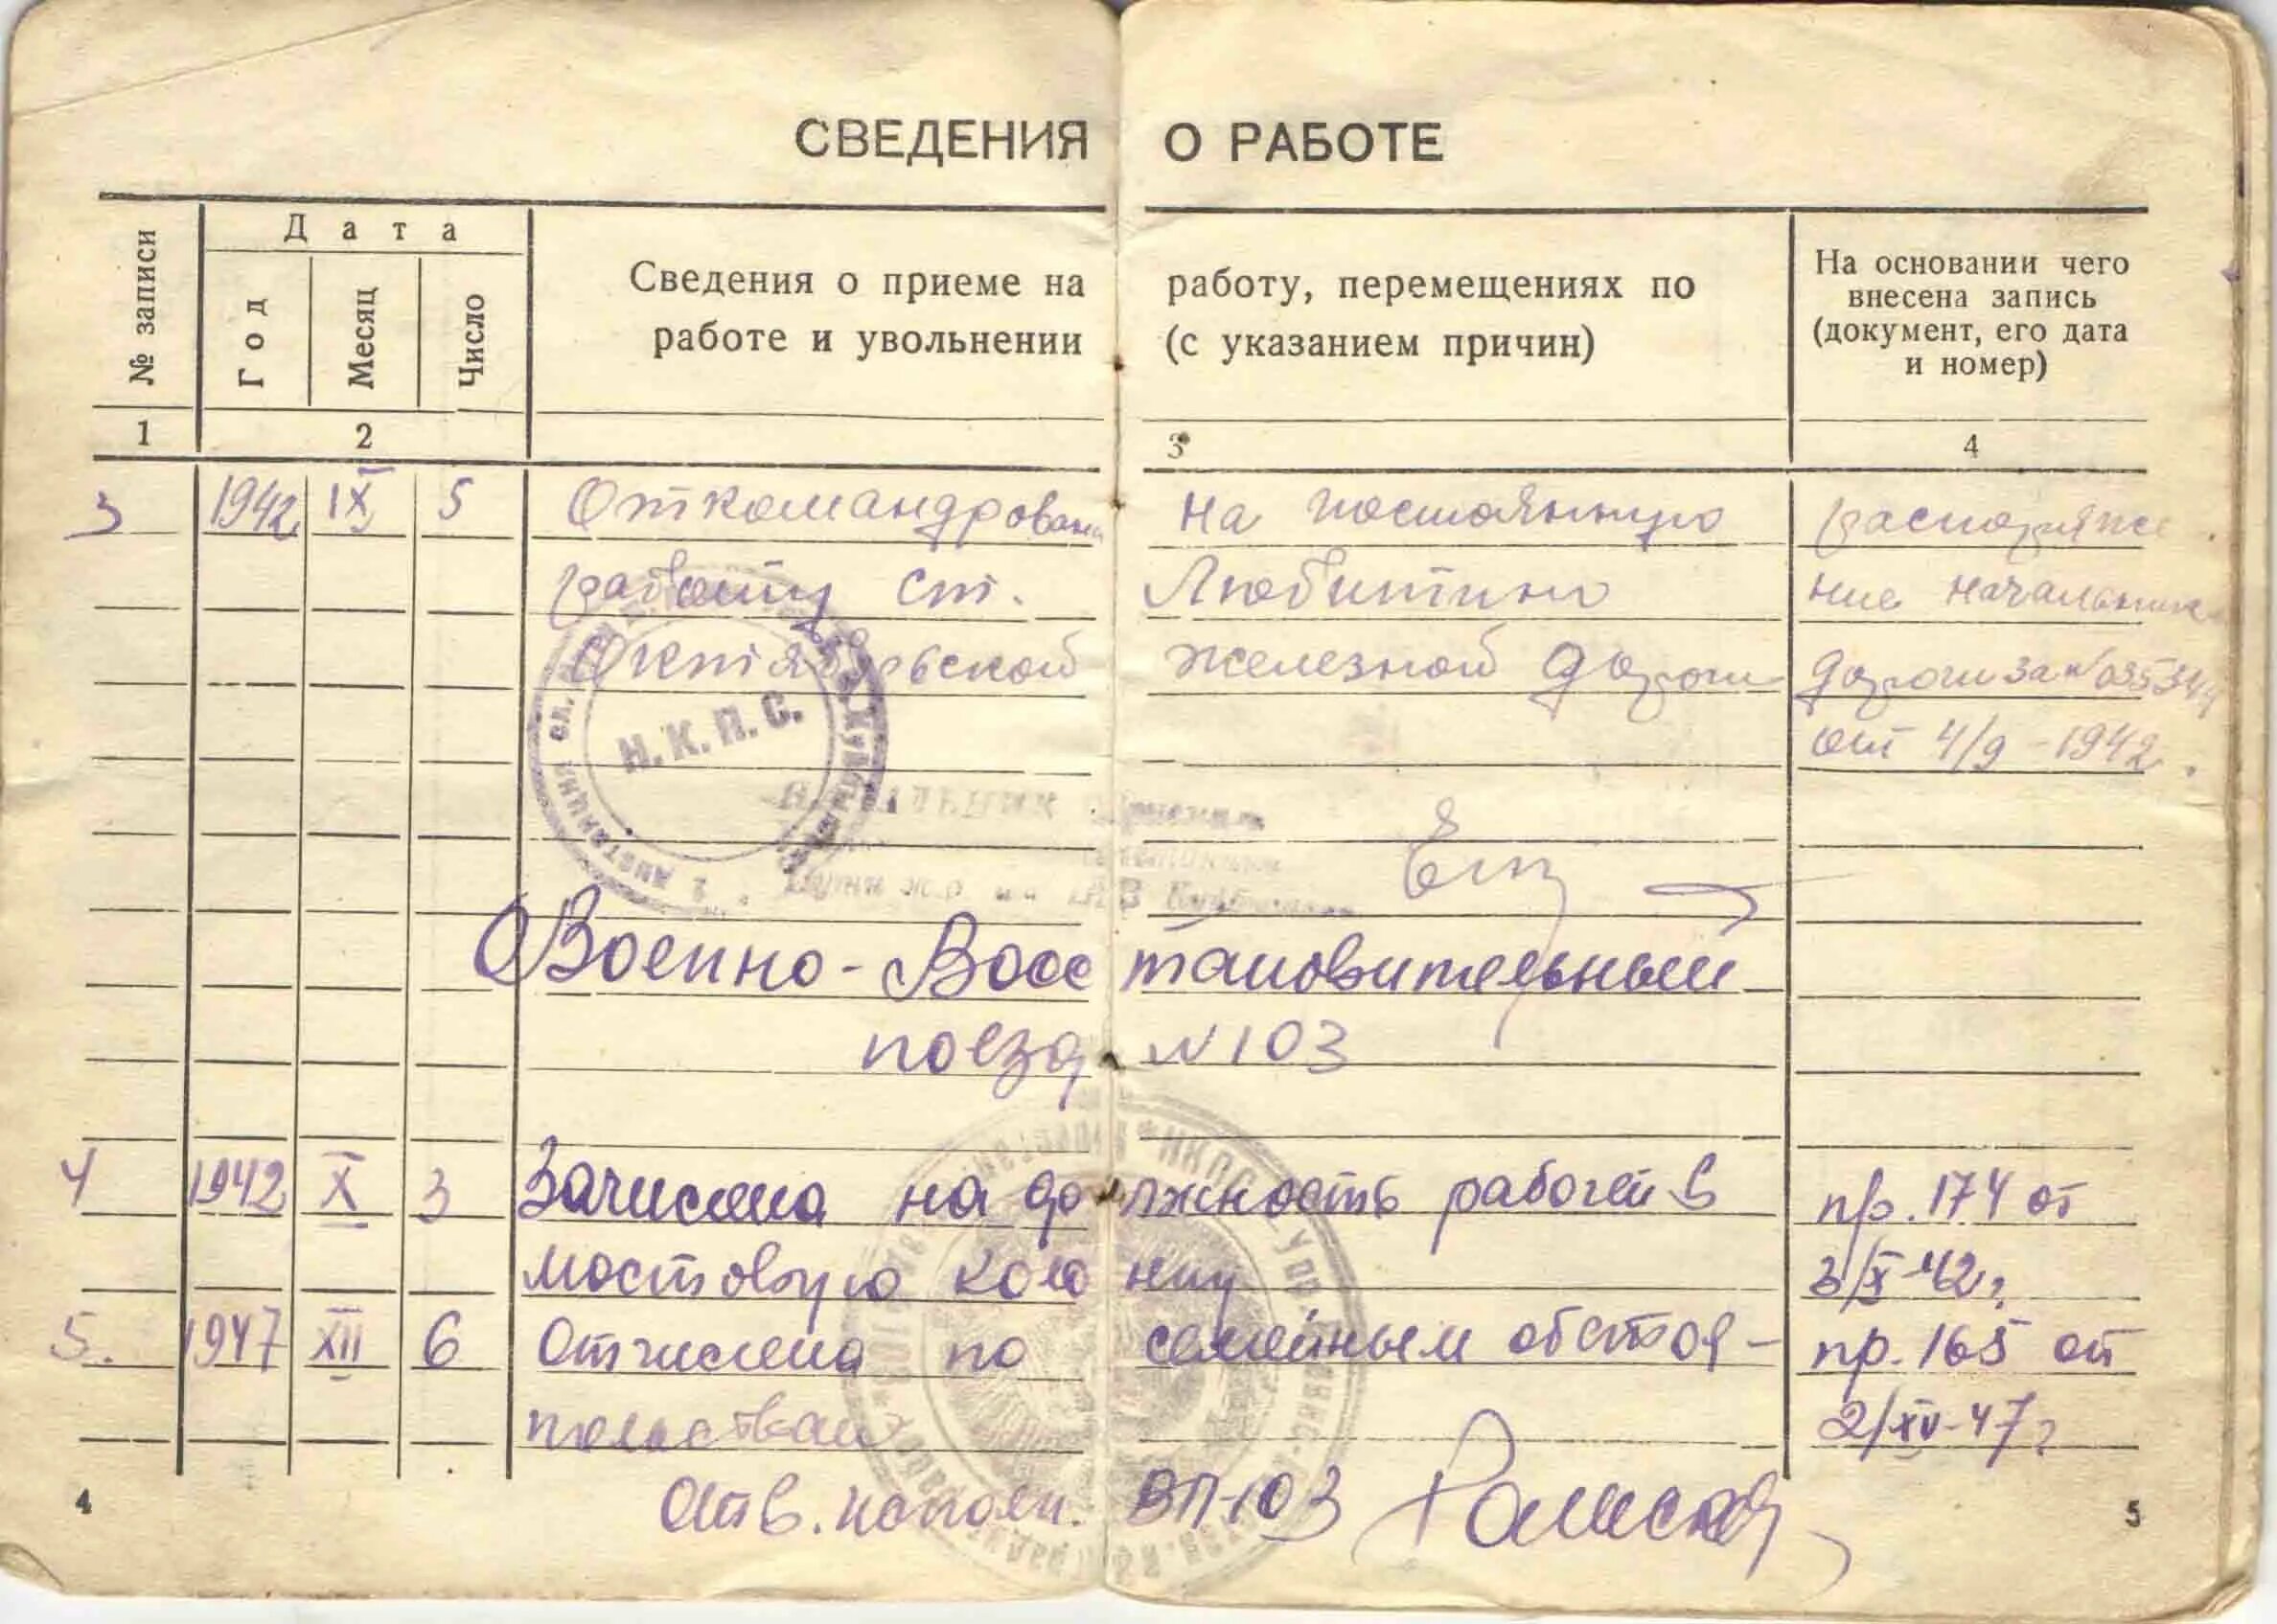 СВЕДЕНИЯ О РАБОТЕ
№ записи
Дата
Год
Месяц
Число
Сведения о приеме на работу, перемещениях по
работе и увольнении (с указанием причин)
На основании чего
внесена запись
(документ, его дата
и номер)
1 2 3 4
3 1942 IX 5 Откомандрована на постоянную распоряже
работу ст. Любытино ние начальника
Октябрьской железной дороги дороги за №
от 4/9-1942.
Н.К.П.С.
Военно-Восстановительный
поезд №103
4 1942 X 3 Зачислена на должность рабочей в пр. 174 от
мостовую колонну 3/X-42г.
5. 1947 XII 6 Отчислена по семейным обстоя- пр. 165 от
тельствам 2/XII-47г
Отв. исполн. ВП-103
4 5